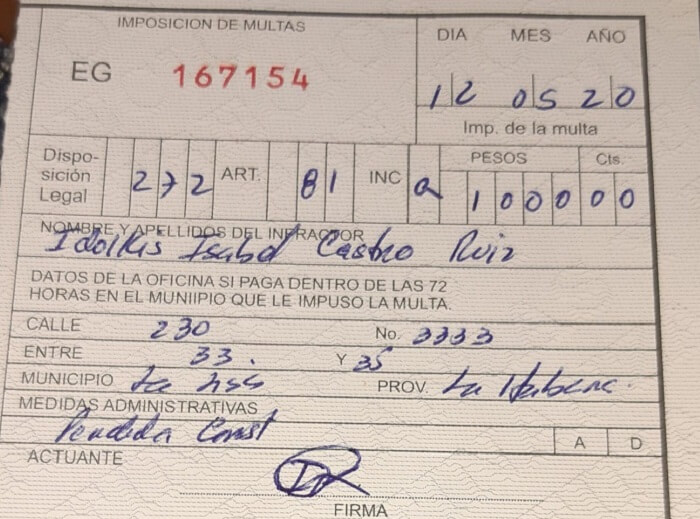 IMPOSICION DE MULTAS
DIA MES AÑO
EG 167154
12 05 20
Imp. de la multa
Dispo-
sición
Legal 272 ART. 81 INC a
PESOS Cts.
10000 00
NOMBRE Y APELLIDOS DEL INFRACTOR
Isabel Castro Ruiz
DATOS DE LA OFICINA SI PAGA DENTRO DE LAS 72
HORAS EN EL MUNIIPIO QUE LE IMPUSO LA MULTA.
CALLE 230 No. 3333
ENTRE 33. Y 35
MUNICIPIO La PROV. La Habana.
MEDIDAS ADMINISTRATIVAS
Perdida Const
A D
ACTUANTE
FIRMA